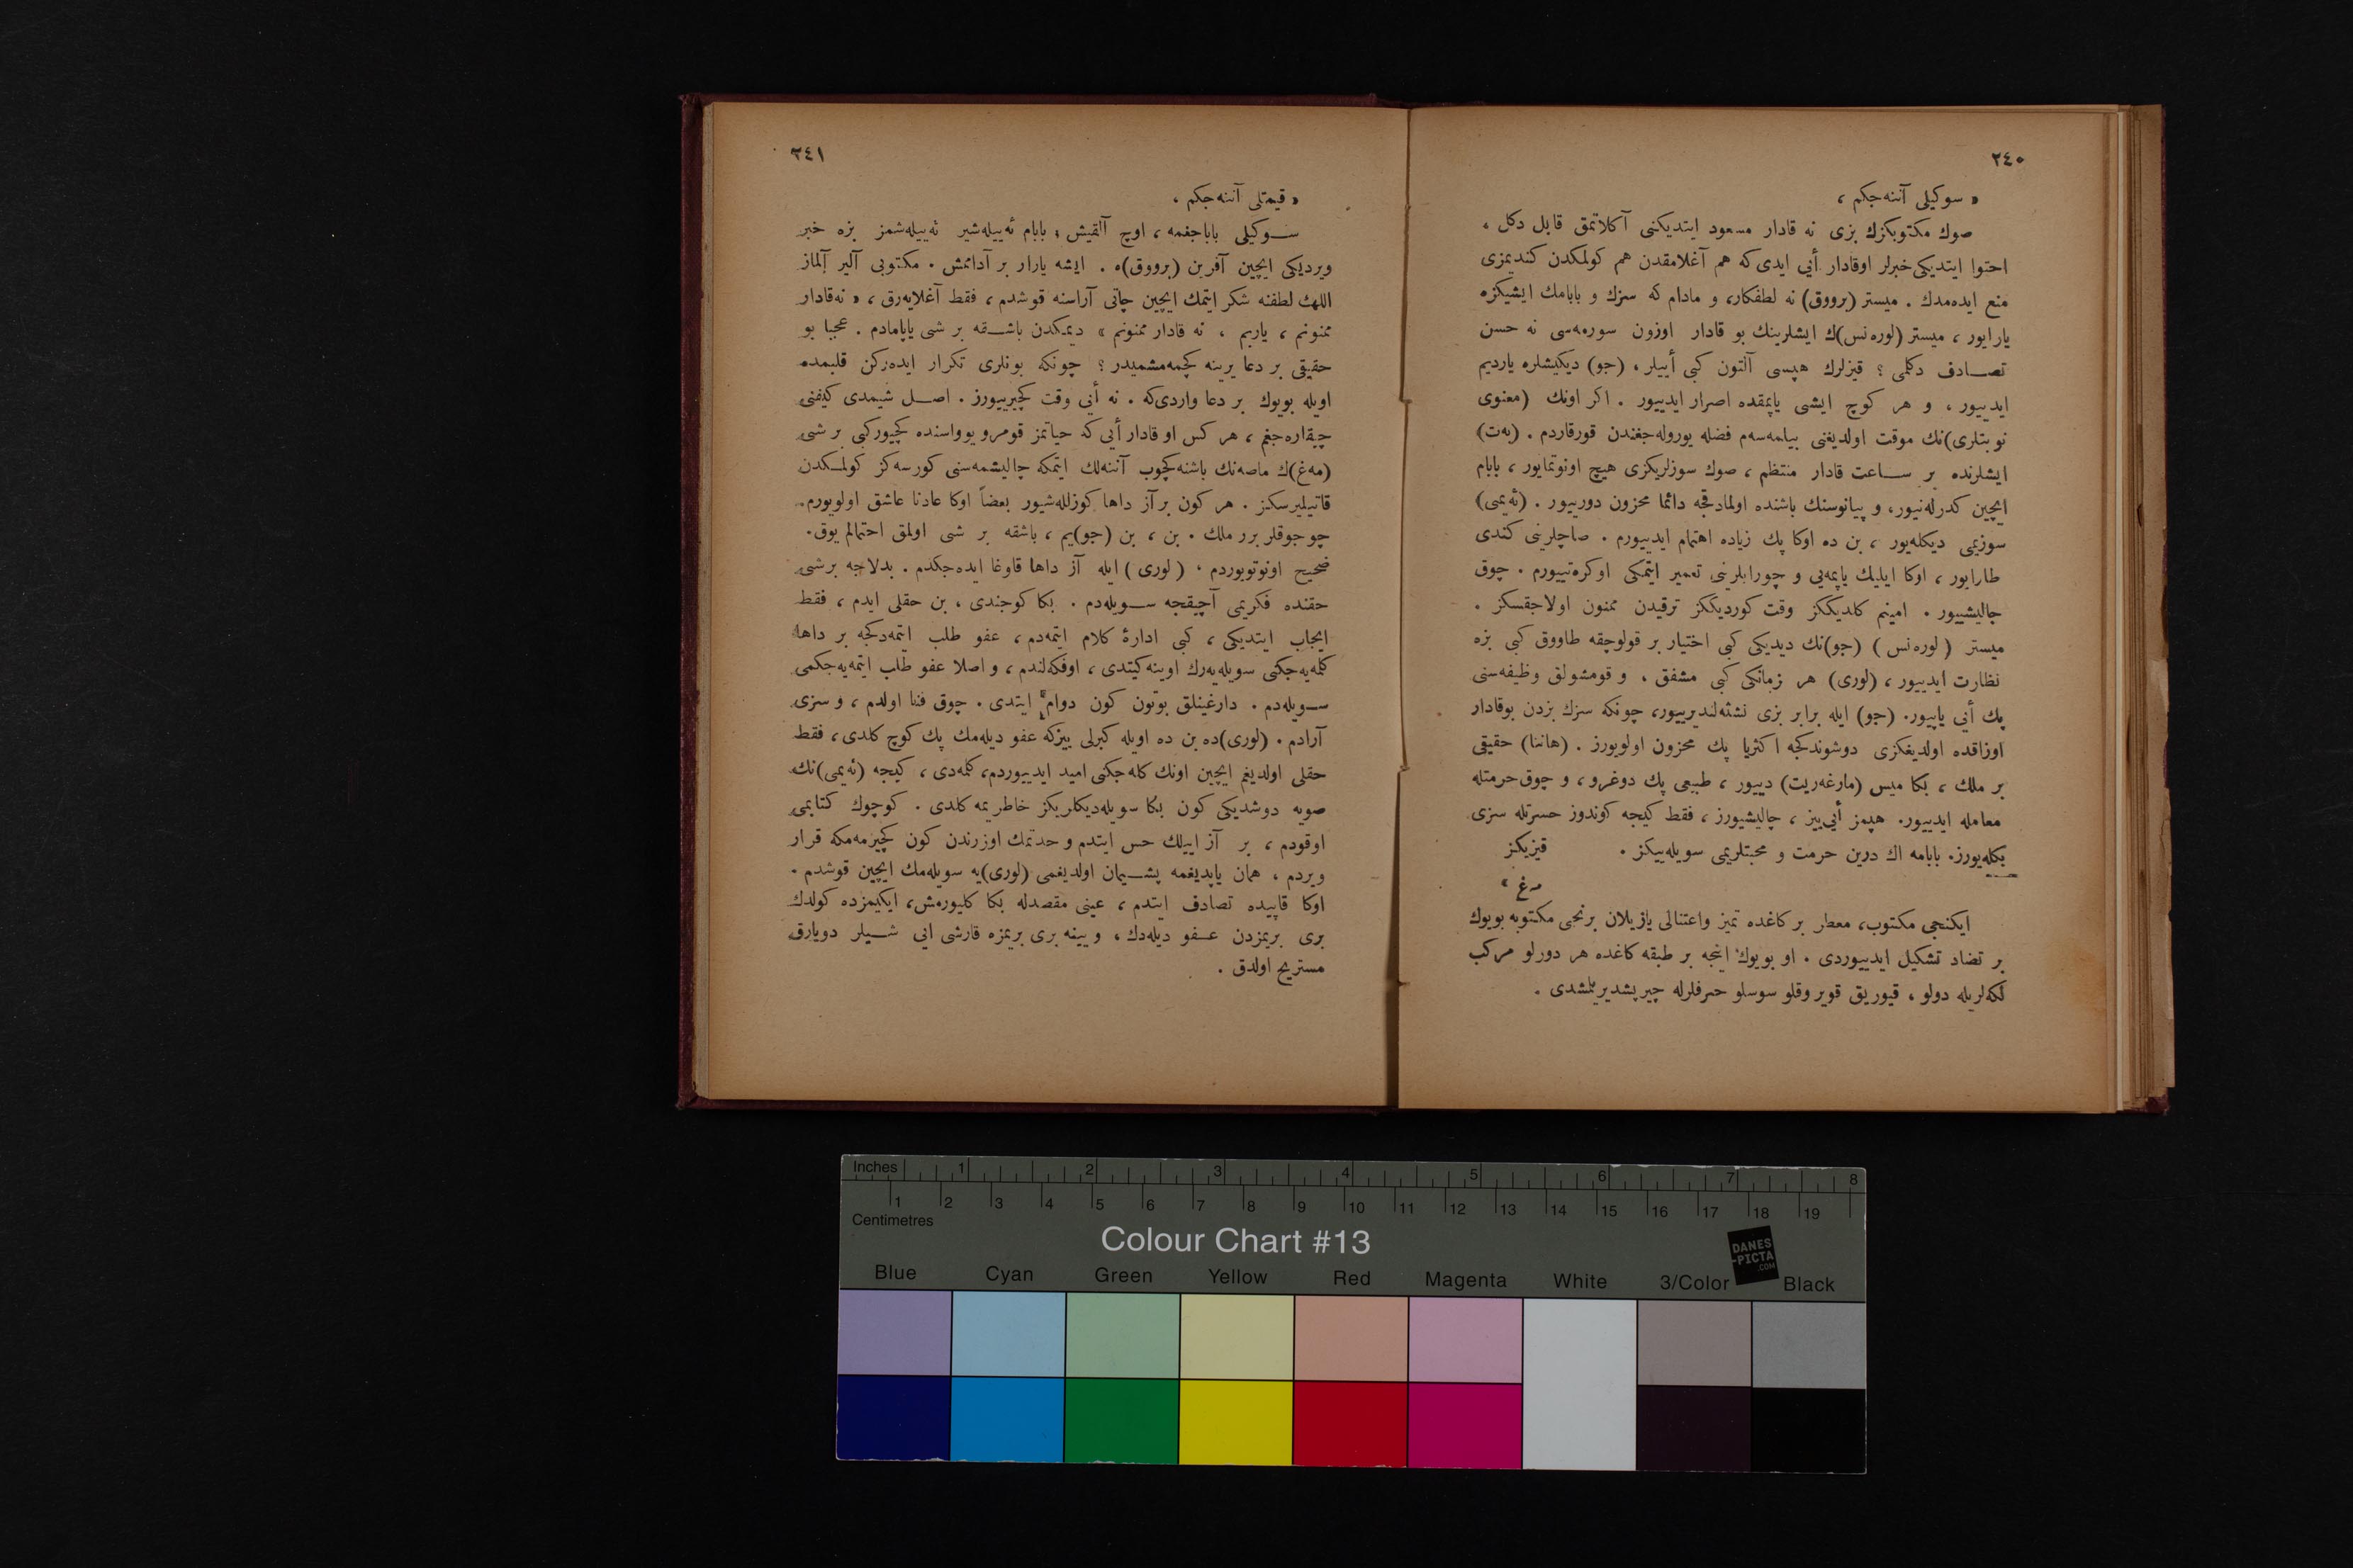 ٢٤٠
« سوكيلى آننه‌جكم ،
صوك مكتوبكزك بزى نه قادار مسعود ايتديكنى آكلاتمق قابل دكل .
احتوا ايتديكى خبرلر اوقادار أيى ايدى كه هم آغلامقدن هم كولمكدن كنديمزى
منع ايده‌مدك . ميستر (برووق) نه لطفكار، و مادام كه سزك و بابامك ايشيكزه
يارايور ، ميستر (لوره‌نس)ك ايشلرينك بو قادار اوزون سورمه‌سى نه حسن
تصادف دكلمى ؟ قيزلرك هپسى آلتون كبى أييلر ، (جو) ديكيشلره يارديم
ايدييور ، و هر كوچ ايشى يابمقده اصرار ايدييور . اكر اونك (معنوى
نوبتلرى)نك موقت اولديغنى بيلمه‌سه‌م فضله يوروله‌جغندن قورقاردم . (به‌ت)
ايشلرنده بر ساعت قادار منتظم ، صوك سوزلريكزى هيچ اونوتمايور ، بابام
ايچين كدرله‌نيور، و پيانوسنك باشنده اولمادقجه دائما محزون دورييور . (ئه‌يمى)
سوزيمى ديكله‌يور ، بن ده اوكا پك زياده اهتمام ايدييورم . صاچلرينى كندى
طارايور ، اوكا ايليك ياپمه‌يى و چورابلرينى تعمير ايتمكى اوكره‌تييورم . چوق
چاليشييور . امينم كلديككز وقت كورديككز ترقيدن ممنون اولاجقسكز .
ميستر ( لوره‌نس ) (جو)نك ديديكى كبى اختيار بر قولوچقه طاووق كبى بزه
نظارت ايدييور ، (لورى) هر زمانكى كبى مشفق ، و قومشولق وظيفه‌سنى
پك أيى ياپيور. (جو) ايله برابر بزى نشئه‌لنديرييور، چونكه سزك بزدن بوقادار
اوزاقده اولديغكزى دوشوندكجه اكثريا پك محزون اولويورز . (هاننا) حقيقى
بر ملك ، بكا ميس (مارغه‌ريت) دييور ، طبيعى پك دوغرو ، و چوق حرمتله
معامله ايدييور. هپمز أيى‌ييز ، چاليشيورز ، فقط كيجه كوندوز حسرتله سزى
بكله‌يورز. بابامه اك درين حرمت و محبتلريمى سويله‌ييكز . قيزيكز
مه‌غ »
ايكنجى مكتوب، معطر بر كاغده تميز واعتنالى يازيلان برنجى مكتوبه بويوك
بر تضاد تشكيل ايدييوردى . او بويوك اينجه بر طبقه كاغده هر دورلو مركب
لكه‌لريله دولو ، قيوريق قويروقلو سوسلو حرفلرله چيرپشديريلمشدى .
٢٤١
« قيمتلى آننه‌جكم ،
سوكيلى باباجغمه ، اوچ آلقيش ؛ بابام ئه‌ييله‌شير ئه‌ييله‌شمز بزه خبر
ويرديكى ايچين آفرين (برووق)ه . ايشه يارار بر آدامش . مكتوبى آلير آلماز
اللهك لطفنه شكر ايتمك ايچين چاتى آراسنه قوشدم ، فقط آغلايه‌رق ، « نه‌قادار
ممنونم ، ياربم ، نه قادار ممنونم » ديمكدن باشقه بر شى ياپامادم . عجبا بو
حقيقى بر دعا يرينه كچمه‌مشميدر ؟ چونكه بونلرى تكرار ايده‌ركن قلبمده
اويله بويوك بر دعا واردى‌كه . نه أيى وقت كچيرييورز . اصل شيمدى كيفنى
چيقاره‌جغم ، هر كس او قادار أيى كه حياتمز قومرو يوواسنده كچيوركبى بر شى
(مه‌غ)ك ماصه‌نك باشنه كچوب آننه‌لك ايتمكه چاليشمه‌سنى كورسه‌كز كولمكدن
قاتيليرسكز . هر كون بر آز داها كوزللشيور بعضاً اوكا عادتا عاشق اولويورم.
چوجوقلر برر ملك . بن ، بن (جو)يم ، باشقه بر شى اولمق احتمالم يوق.
صحيح اونوتويوردم ، (لورى) ايله آز داها قاوغا ايده‌جكدم . بدلاجه برشى
حقنده فكريمى آچيقجه سويله‌دم . بكا كوجندى ، بن حقلى ايدم ، فقط
ايجاب ايتديكى ، كبى ادارهٔ كلام ايتمه‌دم ، عفو طلب ايتمه‌دكجه بر داها
كلمه‌يه‌جكنى سويله‌يه‌رك اوينه كيتدى ، اوفكه‌لندم ، و اصلا عفو طلب ايتمه‌يه‌جكمى
سويله‌دم . دارغينلق بوتون كون دوام ايتدى . چوق فنا اولدم ، و سزى
آرادم . (لورى)ده بن ده اويله كبرلى ييزكه عفو ديله‌مك پك كوچ كلدى ، فقط
حقلى اولديغم ايچين اونك كله‌جكنى اميد ايدييوردم، كلمه‌دى ، كيجه (ئه‌يمى)نك
صويه دوشديكى كون بكا سويله‌ديكلريكز خاطريمه كلدى . كوچوك كتابمى
اوقودم ، بر آز اييلك حس ايتدم و حدتمك اوزرندن كون كچيرمه‌مكه قرار
ويردم ، همان ياپديغمه پشيمان اولديغمى (لورى)يه سويله‌مك ايچين قوشدم .
اوكا قاپيده تصادف ايتدم ، عينى مقصدله بكا كليورمش، ايكيمزده كولدك
برى بريمزدن عفو ديله‌دك ، و يينه برى بريمزه قارشى ايى شيلر دويارق
مستريح اولدق .
Inches 1 2 3 4 5 6 7 8
1 2 3 4 5 6 7 8 9 10 11 12 13 14 15 16 17 18 19
Centimetres
Colour Chart #13
DANES
-PICTA
.COM
Blue Cyan Green Yellow Red Magenta White 3/Color Black